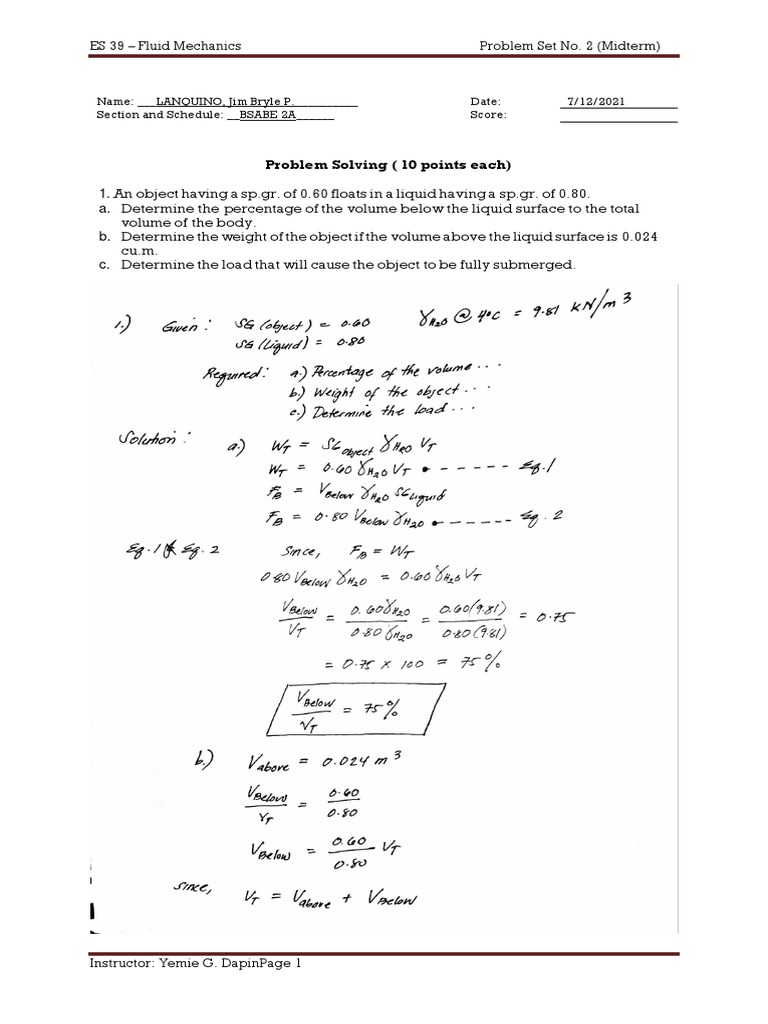 ES 39 – Fluid Mechanics Problem Set No. 2 (Midterm)
Name: ___LANQUINO, Jim Bryle P.___________ Date: 7/12/2021
Section and Schedule: __BSABE 2A______ Score:
Problem Solving ( 10 points each)
1. An object having a sp.gr. of 0.60 floats in a liquid having a sp.gr. of 0.80.
a. Determine the percentage of the volume below the liquid surface to the total
volume of the body.
b. Determine the weight of the object if the volume above the liquid surface is 0.024
cu.m.
c. Determine the load that will cause the object to be fully submerged.
1.) Given: SG (object) = 0.60 γH2O @ 4°C = 9.81 kN/m3
SG (Liquid) = 0.80
Required: a.) Percentage of the volume...
b.) Weight of the object...
c.) Determine the load...
Solution: a.) WT = SGobject γH2O VT
WT = 0.60 γH2O VT ------ Eq. 1
FB = VBelow γH2O SGLiquid
FB = 0.80 VBelow γH2O ------ Eq. 2
Eq. 1 & Eq. 2 Since, FB = WT
0.80 VBelow γH2O = 0.60 γH2O VT
VBelow/VT = 0.60γH2O/0.80γH2O = 0.60(9.81)/0.80(9.81) = 0.75
= 0.75 x 100 = 75%
VBelow/VT = 75%
b.) Vabove = 0.024 m3
VBelow/VT = 0.60/0.80
VBelow = 0.60/0.80 VT
since, VT = Vabove + VBelow
Instructor: Yemie G. DapinPage 1